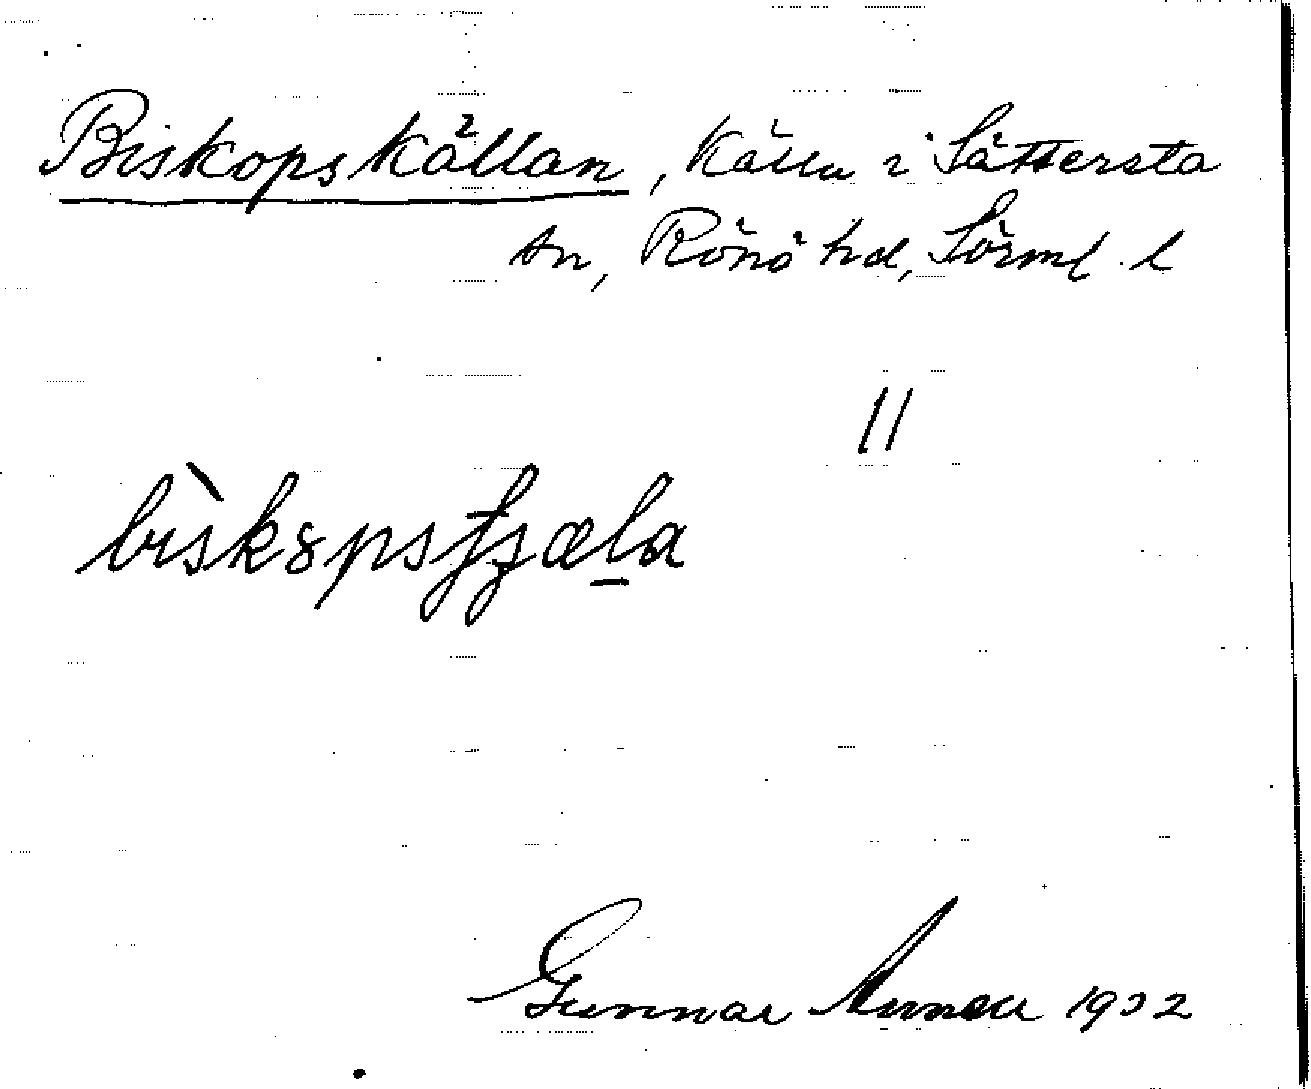 Biskopskällan, källa i Sättersta
sn, Rönö hd, Sörml. l
11
bìskopsʃʒæla
Gunnar 1932